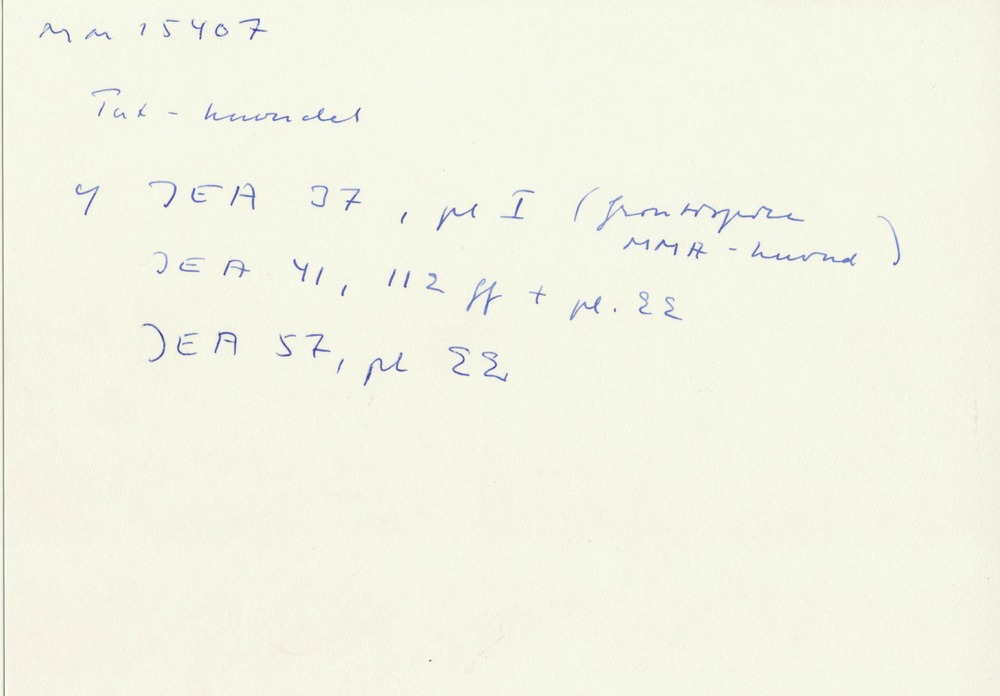 MM 15407
Tut-huvudet
cf JEA 37, pl I (frontispice
MMA-huvud)
JEA 41, 112 ff + pl.
JEA 57, pl